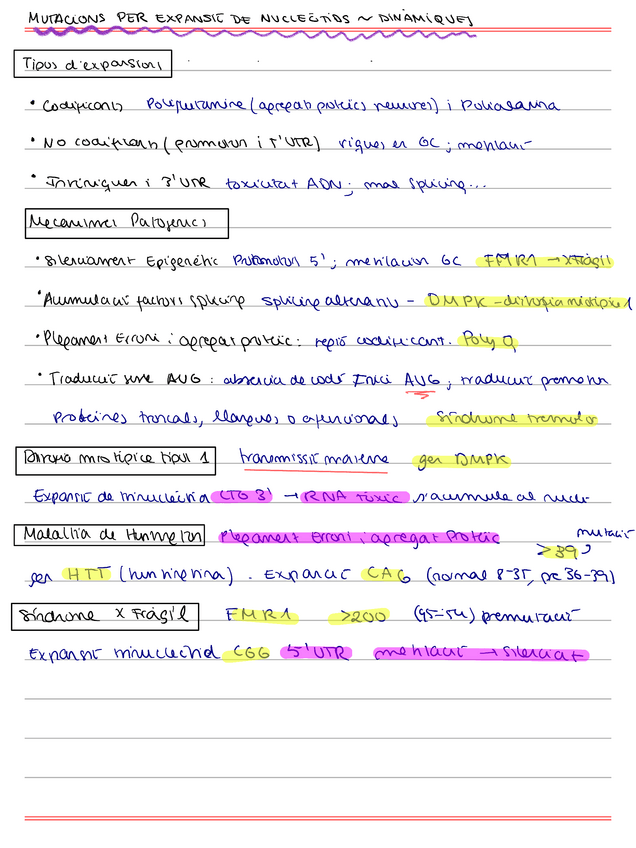 MUTACIONS PER EXPANSIÓ DE NUCLEÒTIDS ~ DINÀMIQUES
Tipus d'expansions
• Codificants Poliglutamina (agregats proteics neurones) i Polialanina
• No codificants (promotor i 5'UTR) riques en GC; metilació
• Intròniques i 3'UTR toxicitat ADN; mal splicing...
Mecanismes Patogenics
• Silenciament Epigenètic Promotor 5'; metilacion GC FMR1 → X Fràgil
• Acumulació factors splicing splicing alternatiu - DMPK - distrofia miotòpica 1
• Plegament Erroni i agregat proteic: regió codificant. Poly Q
• Traducció sense AUG: absencia de codó Inici AUG; traducció prematura
Proteines truncades, llargues o afuncionals Síndrome tremolor
Distrofia miotòpica tipus 1 transmissió materna gen DMPK
Expansió de trinucleòtids CTG 3' → RNA tòxic s'acumula al nucli
Malaltia de Huntington Plegament Erroni i agregat Proteic >39 mutació
gen HTT (huntingtina). Expansió CAG (normal 8-35, pre 36-39)
Síndrome X Fràgil FMR1 >200 (45-54) premutació
Expansió trinucleòtid CGG 5'UTR metilació → silenciat